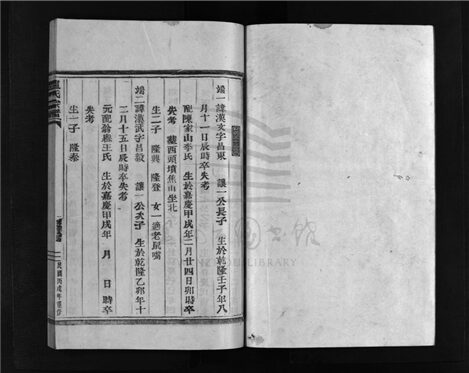 端一諱漢文字昌東 讓一公長子 生於乾隆壬子年八
月十一日辰時卒失考
配陳家山季氏 生於嘉慶甲戌年二月廿四卯時卒
失考 葬西頭墳焦山坐北
生二子 隆興 隆登 女一適老鼠嘴
端二諱漢武字昌教 讓一公次子 生於乾隆乙卯年十
二月十五日辰時卒失考
元配翁庵王氏 生於嘉慶甲戌年 月 日 時卒
失考
生一子 隆泰
民國丙戌年重修
LIBRARY